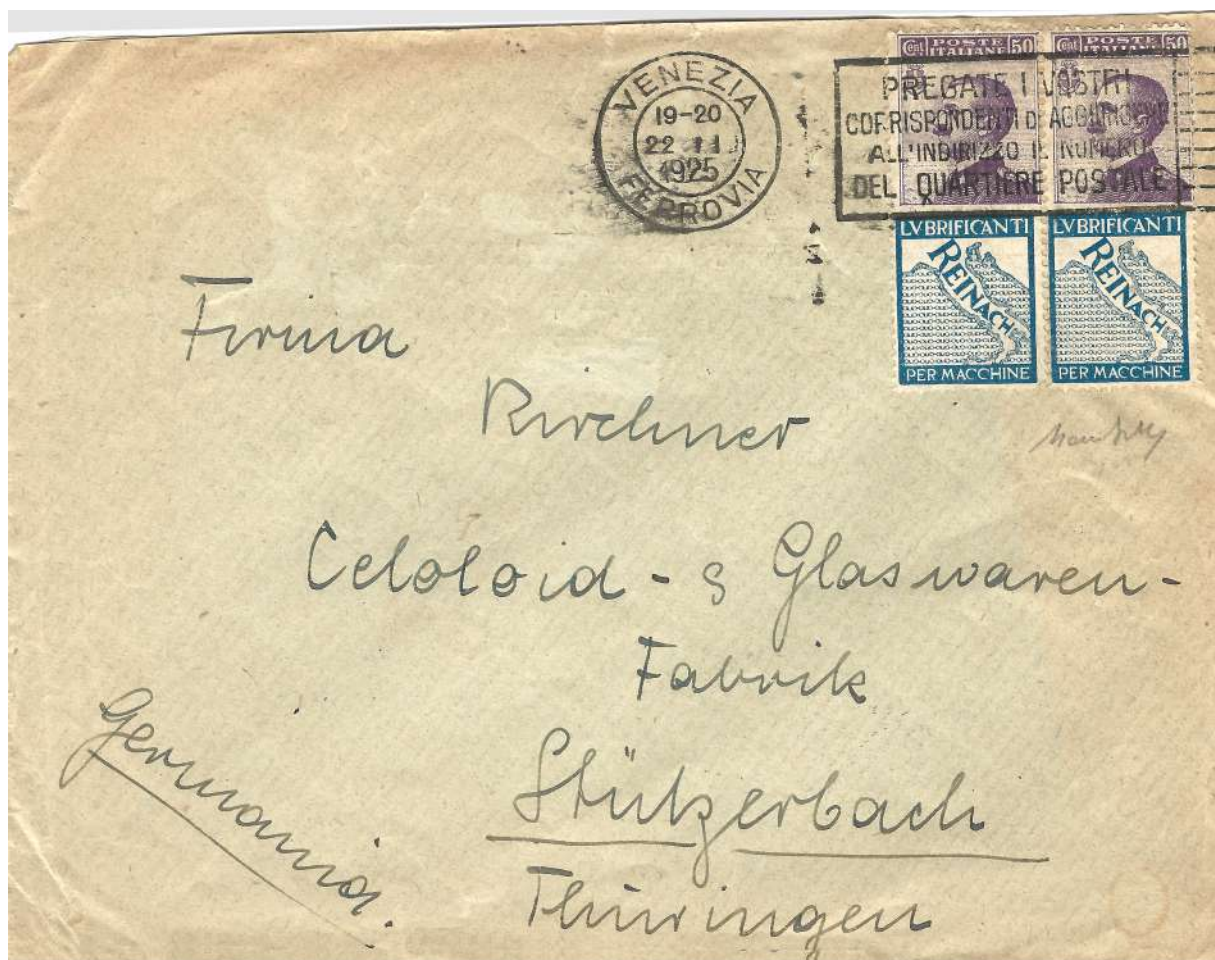 VENEZIA
19-20
22 III
1925
FERROVIA
Cent POSTE ITALIANE 50
Cent POSTE ITALIANE 50
PREGATE I VOSTRI
CORRISPONDENTI DI AGGIUNGERE
ALL'INDIRIZZO IL NUMERO
DEL QUARTIERE POSTALE
LVBRIFICANTI
REINACH
PER MACCHINE
LVBRIFICANTI
REINACH
PER MACCHINE
Firma
Kirchner
Celoloid - & Glaswaren-
Fabrik
Stützerbach
Thüringen
Germania.